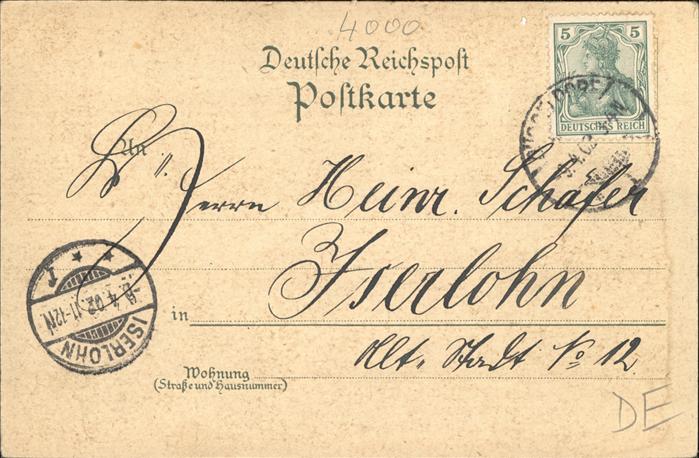 4000
Deutsche Reichspost
Postkarte
5 5
DEUTSCHES REICH
DÜSSELDORF
An
Herrn Heinr. Schäfer
in Iserlohn
Wohnung
(Straße und Hausnummer)
Alt. Stadt No 12.
ISERLOHN
4.02.11-12N
DE